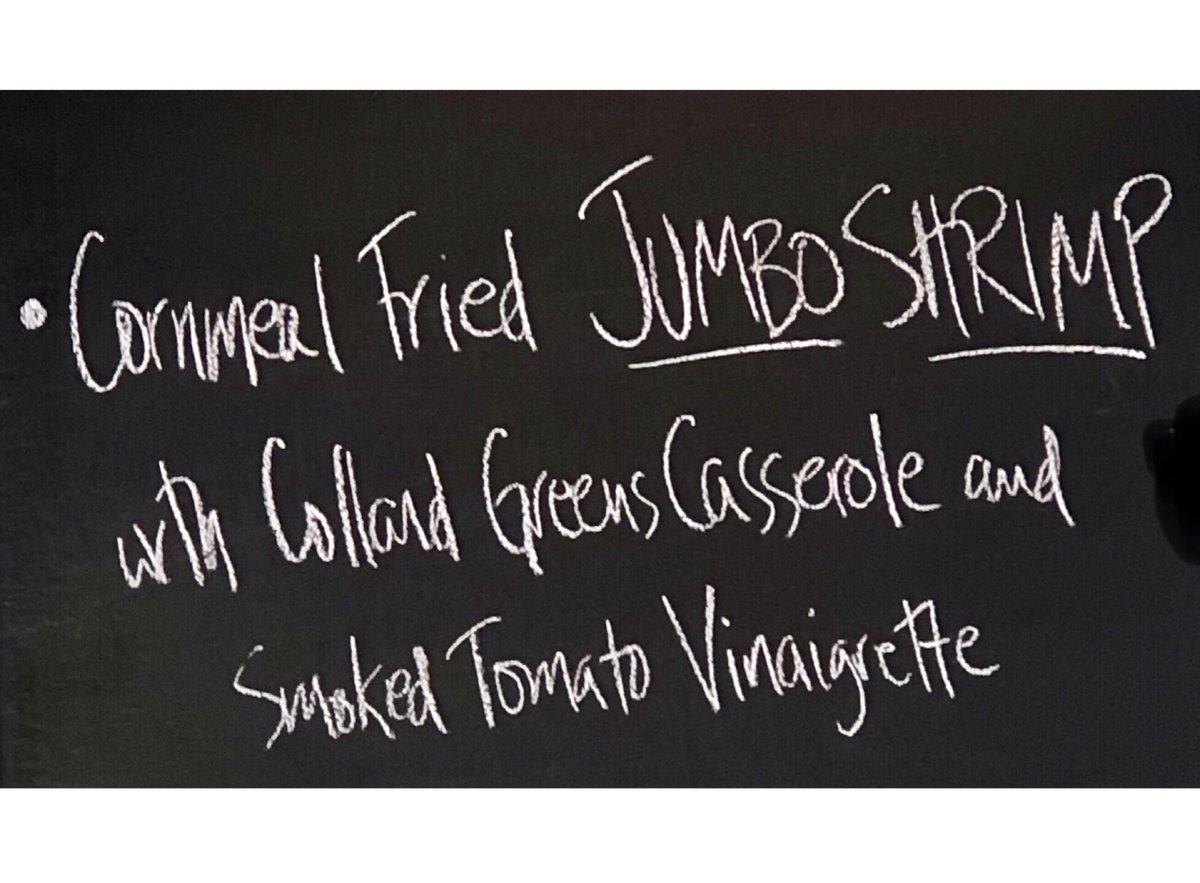 • Cornmeal Fried JUMBO SHRIMP
with Collard Greens Casserole and
Smoked Tomato Vinaigrette